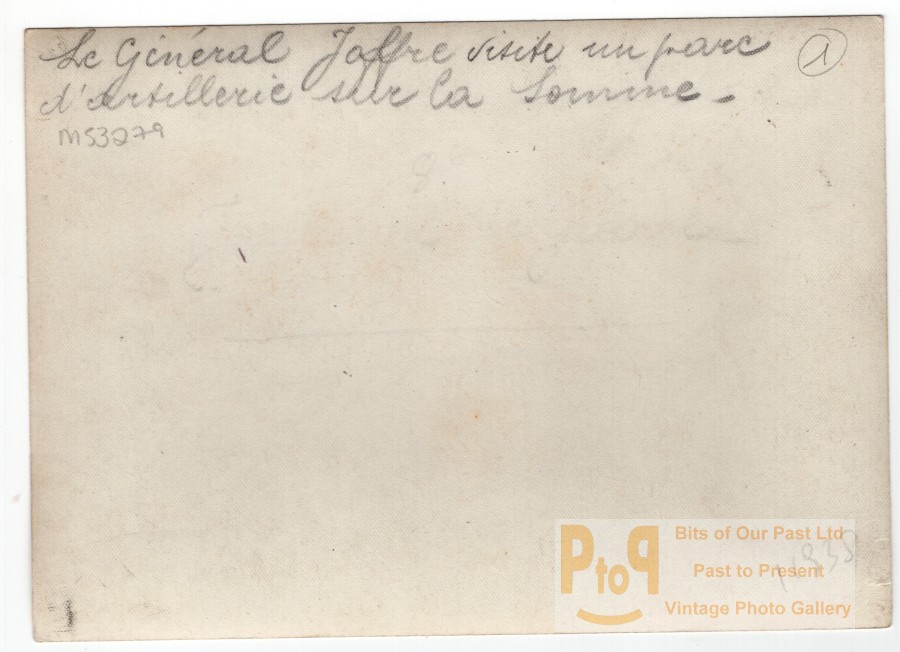 Le Général Joffre visite un parc
①
d'artillerie sur la Somme -
M53279
8
PtoP
Bits of Our Past Ltd
Past to Present
Vintage Photo Gallery